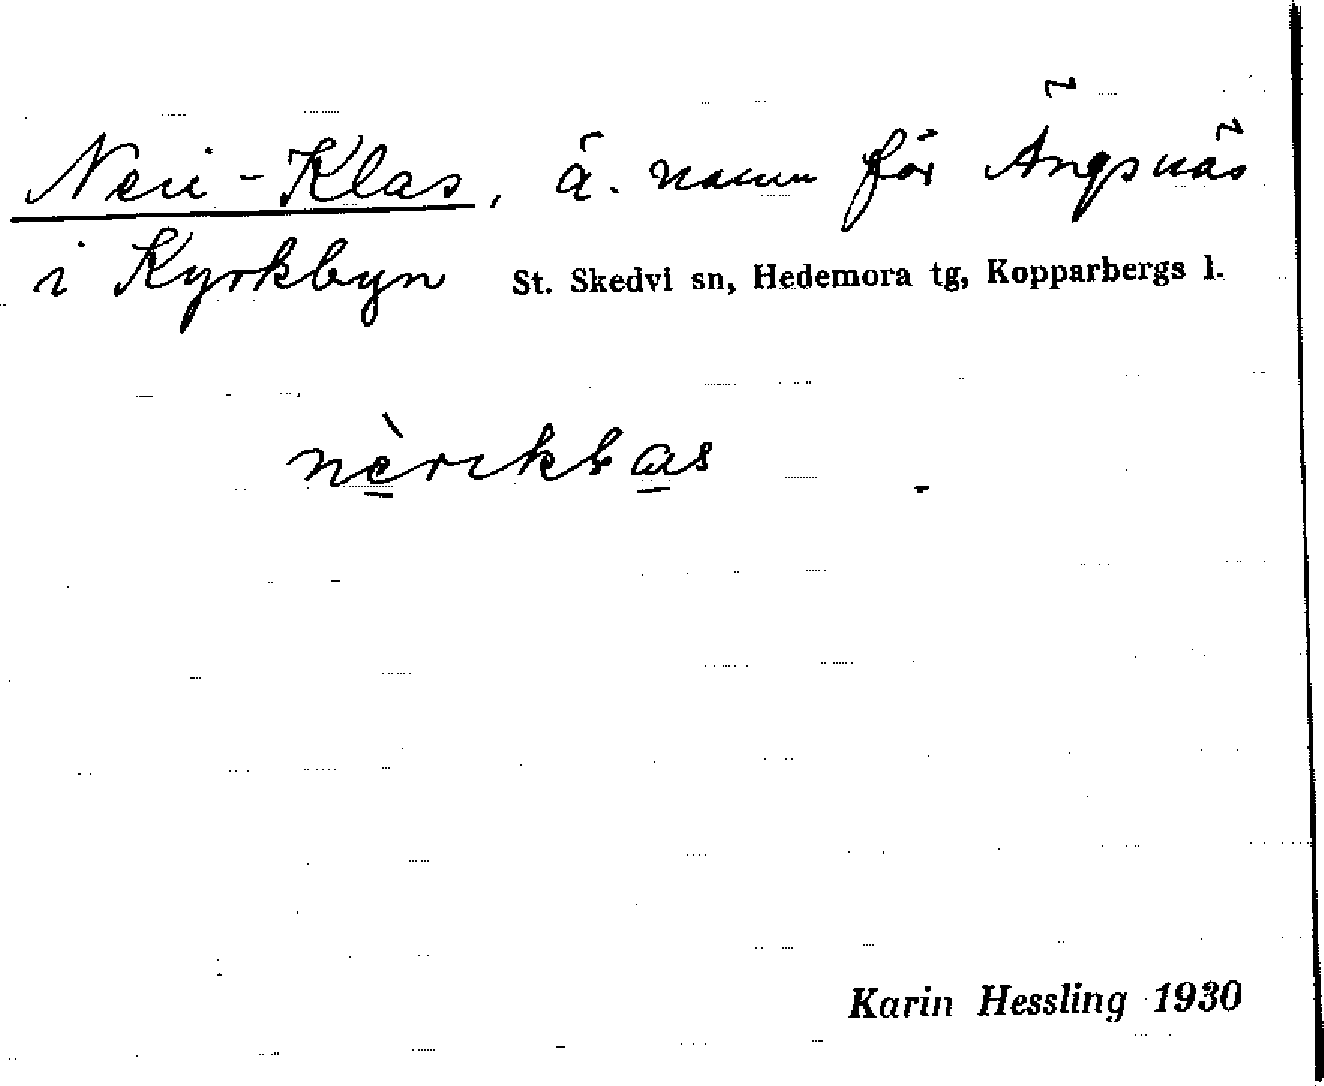 Neri-Klas, ä. namn för Ängsnäs
i Kyrkbyn St. Skedvi sn, Hedemora tg, Kopparbergs l.
nèrɩklas
Karin Hessling 1930